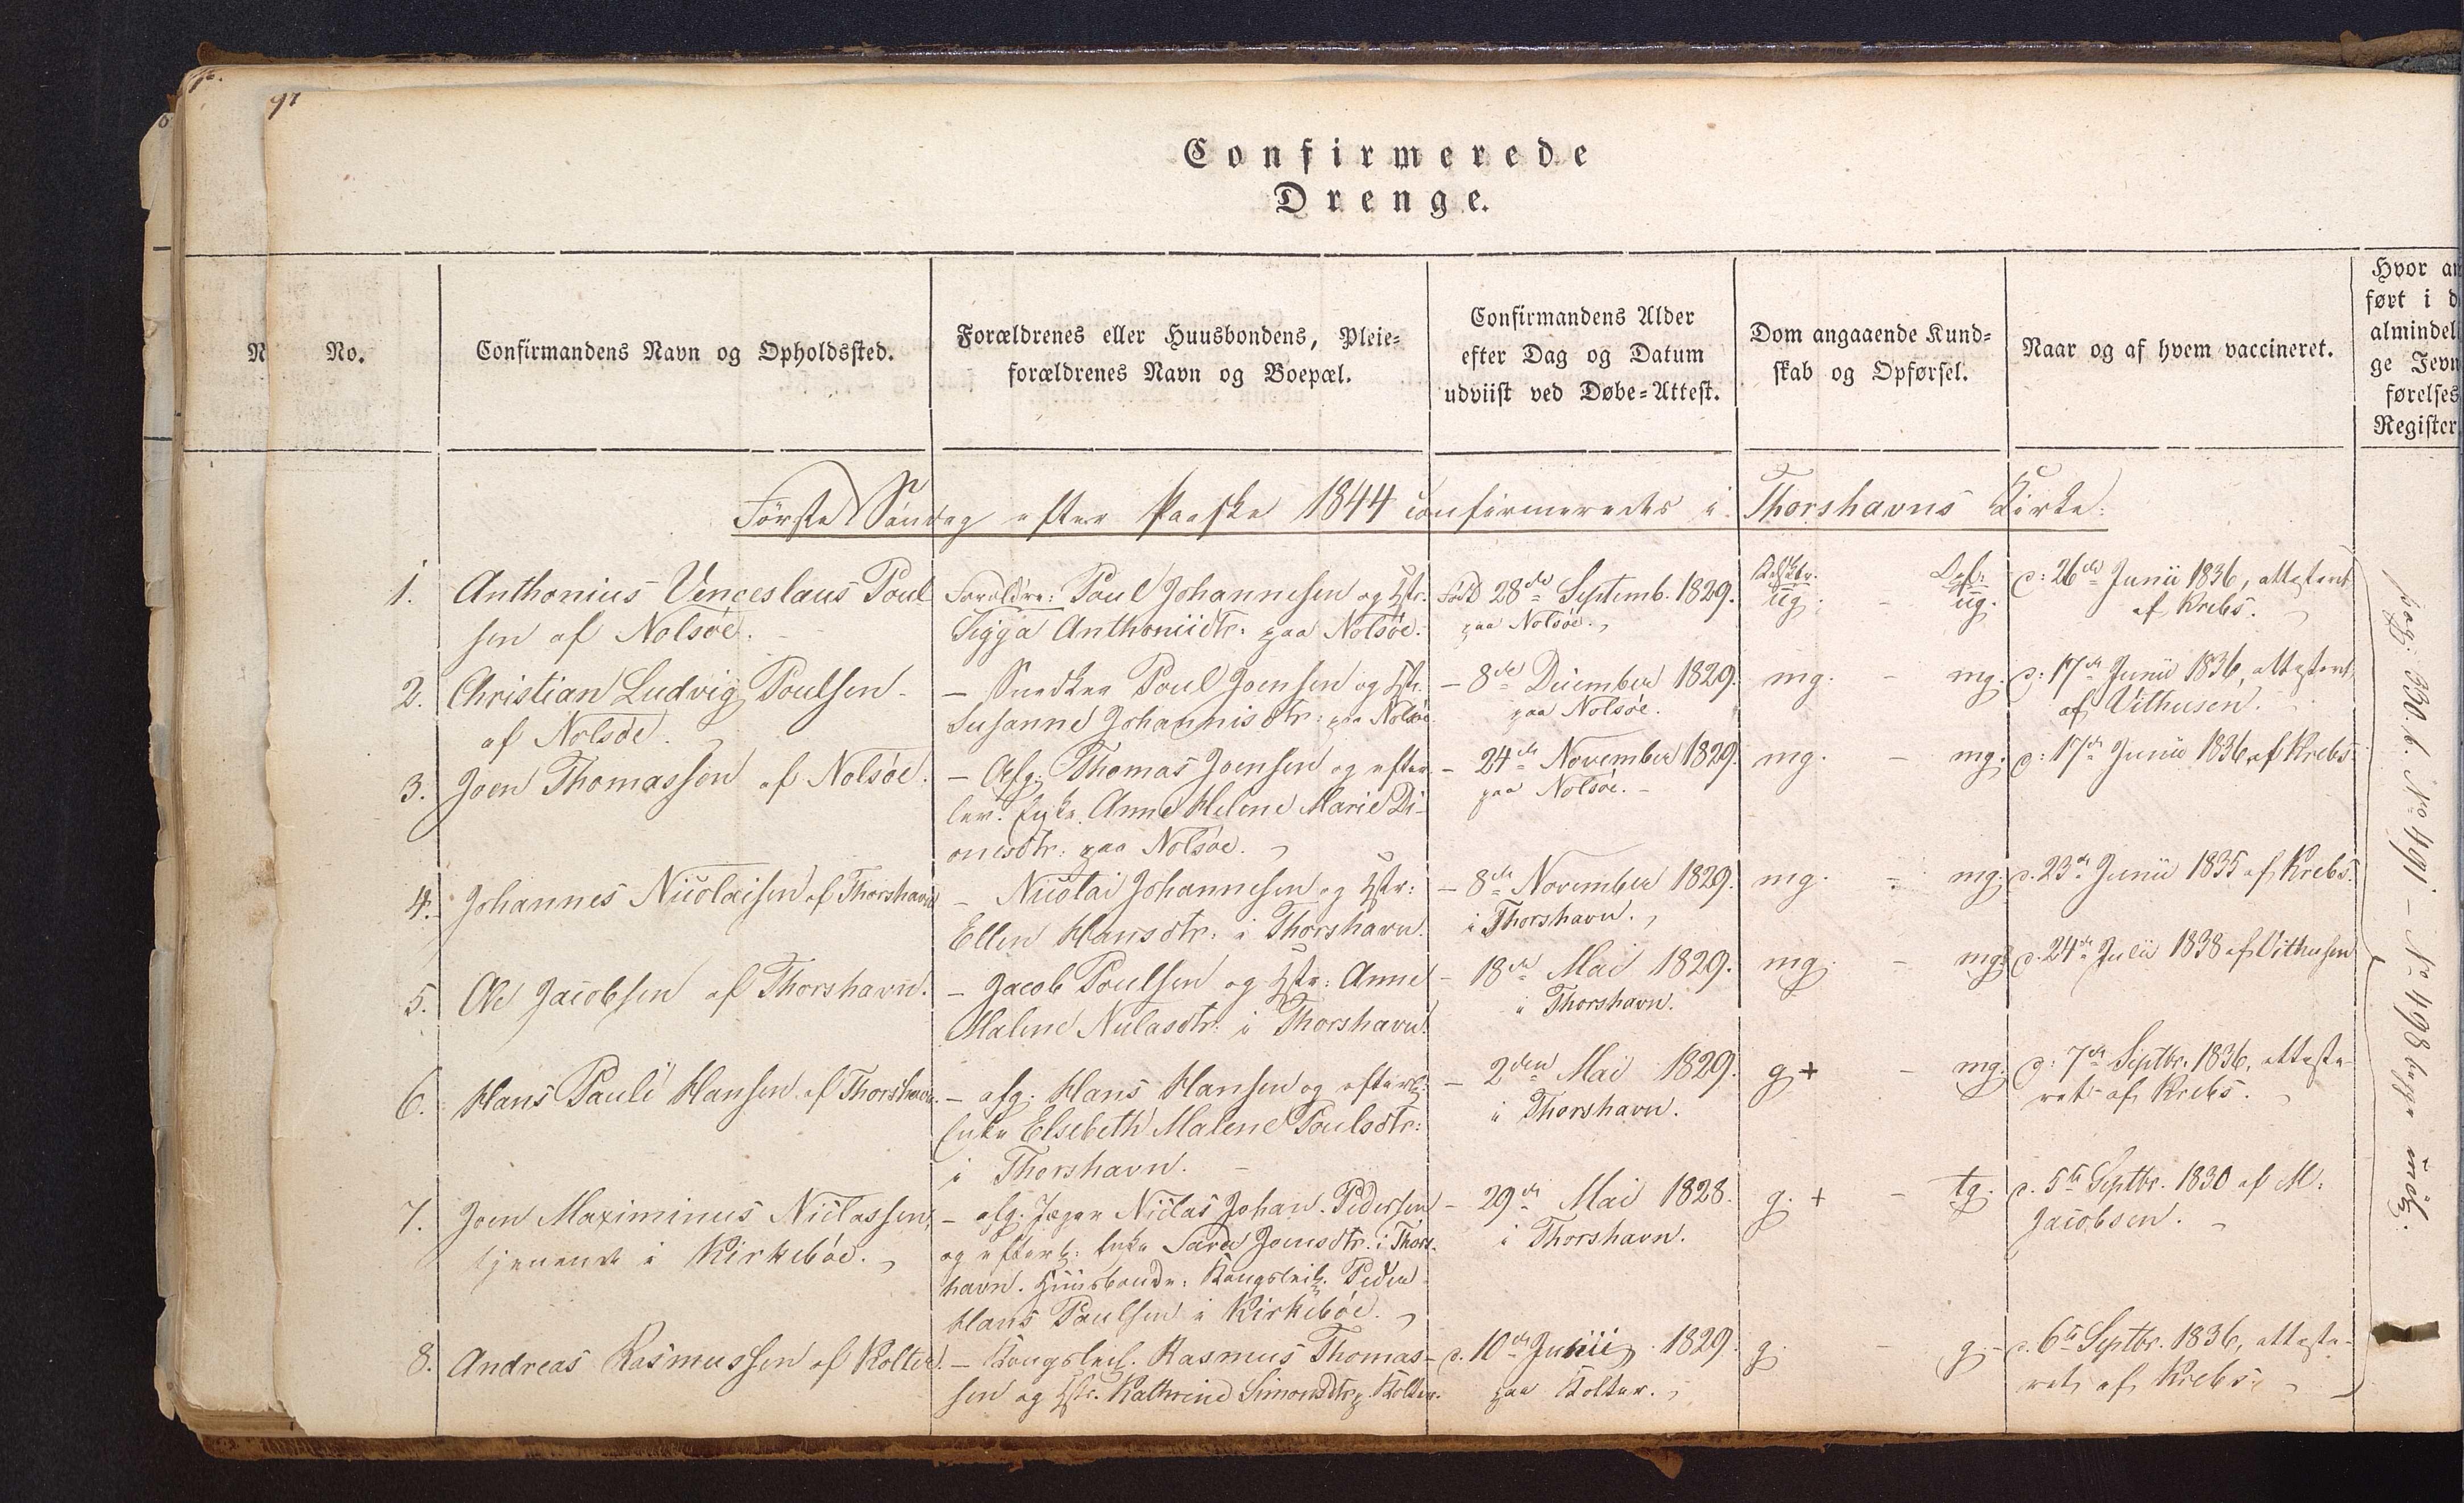 97
Confirmerede
Drenge.
No.
Confirmandens Navn og Opholdssted.
Forældrenes eller Huusbondens, Pleie-
forældrenes Navn og Boepæl.
Confirmandens Alder
efter Dag og Datum
udviist ved Døbe-Attest.
Dom angaaende Kund-
skab og Opførsel.
Naar og af hvem vaccineret.
Hvor an
ført i d
almindel
ge Jevn
førelses
Register
Første Søndag efter Paaske 1844 confirmeredes i Thorshavns Kirke:
1. Anthonius Venceslaus Poul
sen af Nolsøe.
Forældre: Poul Johannesen og Hstr.
Sigga Anthoniidtr: paa Nolsøe.
Født 28de Septemb. 1829.
paa Nolsøe.
Kdskb. Opf.
ug. - ug.
d: 26de Junii 1836, attesteret
af Krebs.
2. Christian Ludvig Poulsen
af Nolsøe.
- Snedker Poul Joensen og Hstr.
Susanne Johannisdtr: paa Nolsøe
- 8de December 1829.
paa Nolsøe.
mg. - mg.
d: 17de Junii 1836, attesteret
af Vithusen.
3. Joen Thomassen af Nolsøe.
- Afg: Thomas Joensen og efter
lev: Enke Anne Helene Marie Di-
onesdtr: paa Nolsøe.
- 24de November 1829.
paa Nolsøe. -
mg. - mg.
d: 17de Junii 1836 af Krebs
4. Johannes Nicolaisen af Thorshavn
- Nicolai Johannesen og Hstr:
Ellen Hansdtr: i Thorshavn.
- 8de November 1829.
i Thorshavn.
mg. - mg.
d. 23de Junii 1835 af Krebs.
5. Ole Jacobsen af Thorshavn.
- Jacob Poulsen og Hstr: Anne
Malene Niclasdtr: i Thorshavn.
- 18de Mai 1829.
i Thorshavn.
mg. - mg.
d. 24de Julii 1838 af Vithusen
6. Hans Pauli Hansen af Thorshavn.
- afg: Hans Hansen og efterl:
Enke Elsebeth Malene Poulsdtr:
i Thorshavn. -
- 2den Mai 1829.
i Thorshavn.
g + - mg.
d: 7de Septbr. 1836, atteste-
ret af Krebs.
7. Joen Maximinus Niclassen,
tjenende i Kirkebøe.
- afg. Jæger Niclas Johan. Pedersen
og efterl: Enke Sara Joensdtr. i Thors-
havn. Huusbonde: Kongsleil: Peder
Hans Poulsen i Kirkebøe.
- 29de Mai 1828.
i Thorshavn.
g. + - tg.
d. 5te Septbr. 1830 af M:
Jacobsen.
8. Andreas Rasmussen af Kolter.
- Kongsleil. Rasmus Thomas-
sen og Hstr. Kathrine Simonsdtr p. Kolter.
d. 10de Junii 1829.
paa Kolter.
g. - g.
d. 6te Septbr. 1836, atteste-
ret af Krebs.
pag: 330. No 491 - No 498 begge incl: